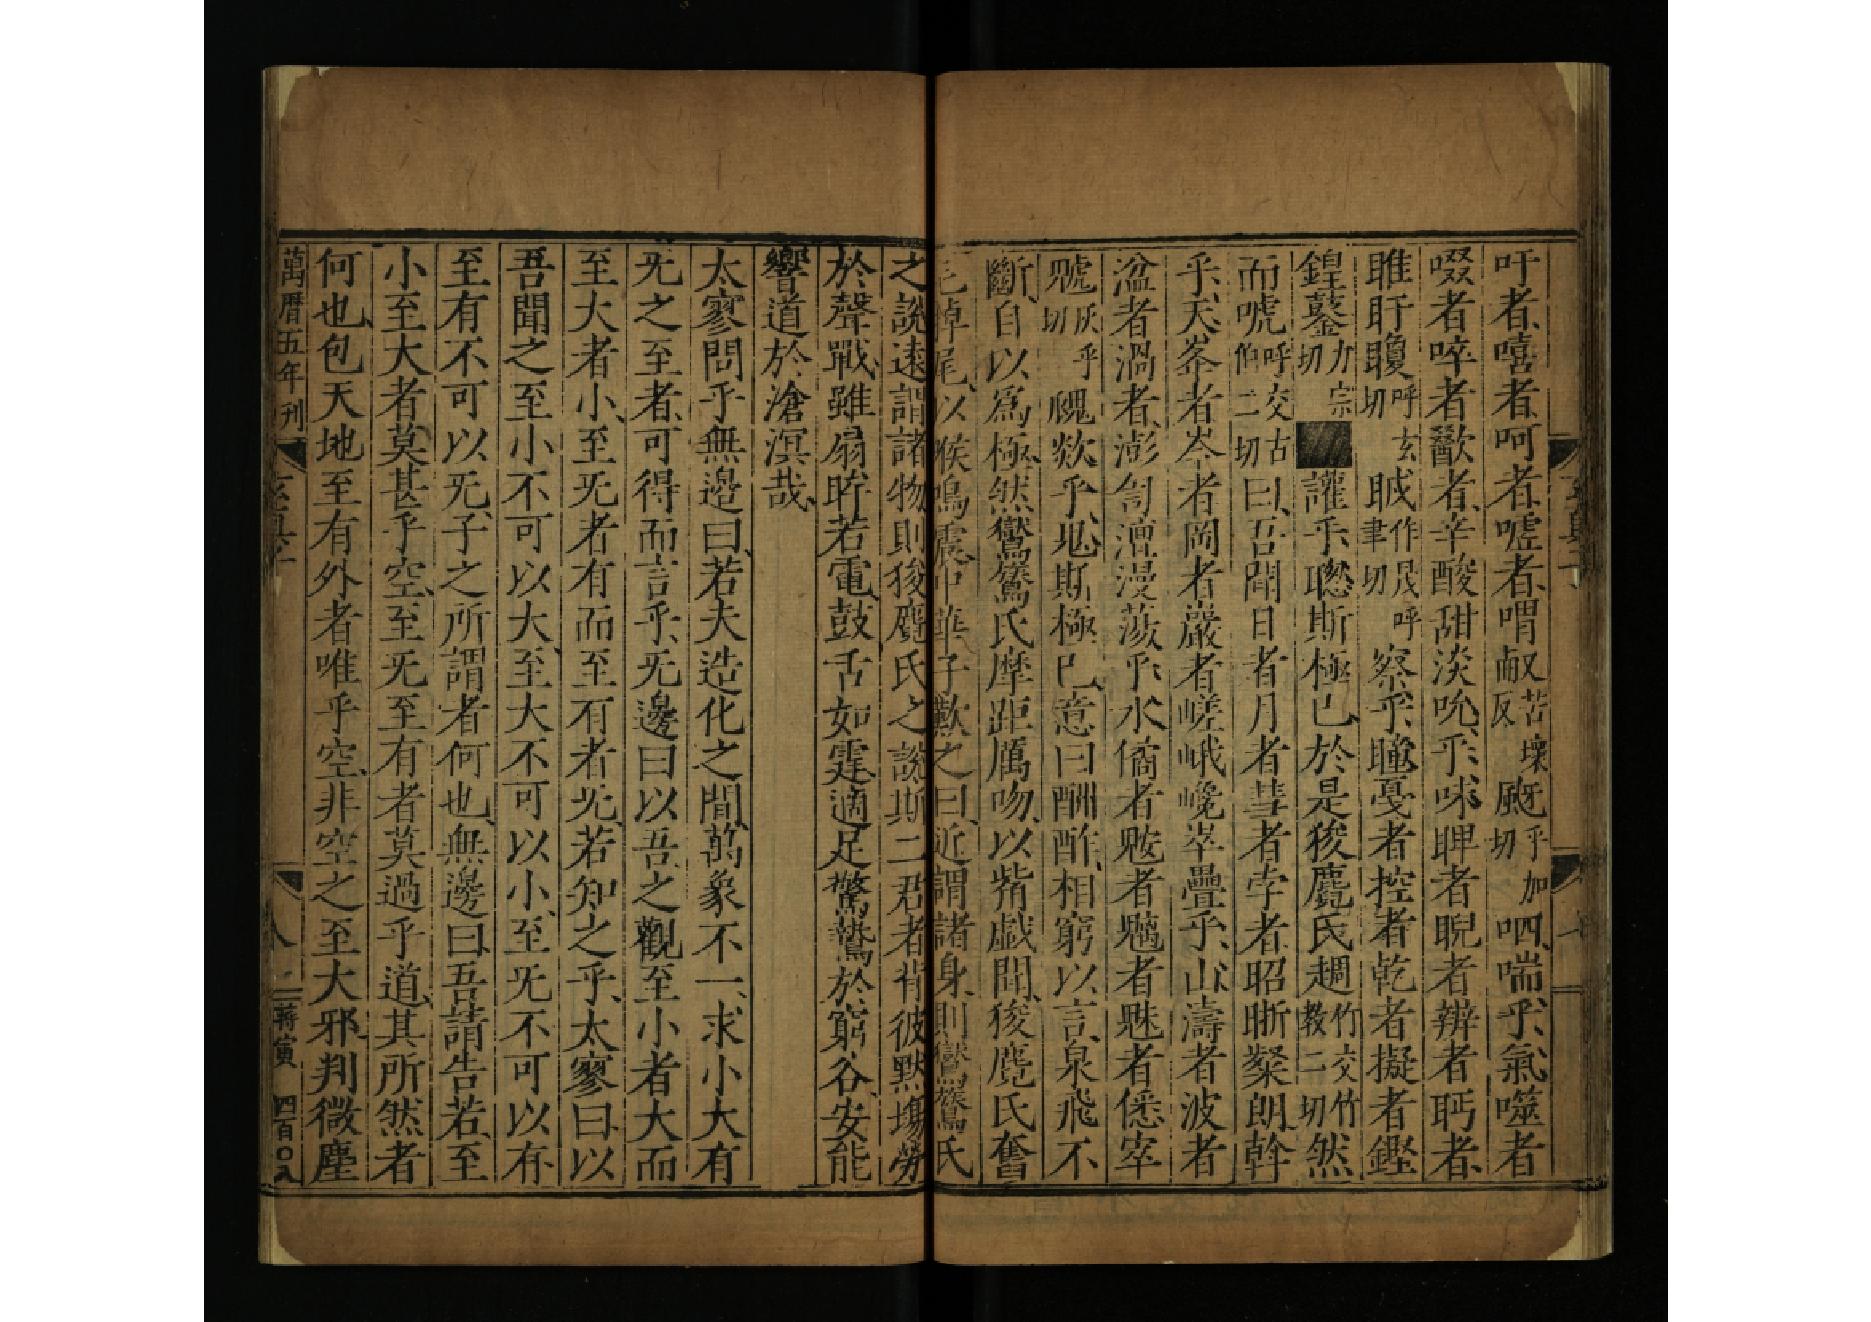 吁者嘻者呵者嘘者喟㕟苦壞反㕧乎加切呬喘乎氣噬者
啜者啐者歠者辛酸甜淡吮乎味睥者睨者辨者眄者
睢盱䁔呼玄切䀏作㫕呼聿切察乎瞳㥑者控者乾者擬者鏗
鍠鼞力宗切讙乎聦斯極已於是狻麑氏趙竹交竹教二切然
而唬呼交古伯二切曰吾聞日者月者彗者孛者昭晰粲朗幹
乎天峚者岑者岡者巖者嵯峨巉崒疊乎山濤者波者
湓者渦者澎匉澶漫蕩乎水僪者㱡者魑者魅者傜宰
乎𩲸歘乎鬼斯極已意曰酬酢相窮以言梟飛不
斷自以為極然鸑鷟氏摩距厲吻以觜戲間狻麑氏奮
毛掉尾以喉鳴震中華子歎之曰近謂諸身則鸑鷟氏
之說遠謂諸物則狻麑氏之說斯二君者背彼默塲勞
於聲戰雖扇眸若電鼓舌如霆適足驚鷙於窮谷安能
響道於滄溟哉
太寥問乎無邊曰若夫造化之間萬象不一求小大有
旡之至者可得而言乎旡邊曰以吾之觀至小者大而
至大者小至旡者有而至有者旡若知之乎太寥曰以
吾聞之至小不可以大至大不可以小至旡不可以有
至有不可以旡子之所謂者何也無邊曰吾請告若至
小至大者莫甚乎空至旡至有者莫過乎道其所然者
何也包天地至有外者唯乎空非空之至大邪判微塵
萬曆五年刊 八 蔣寅 四百〇八